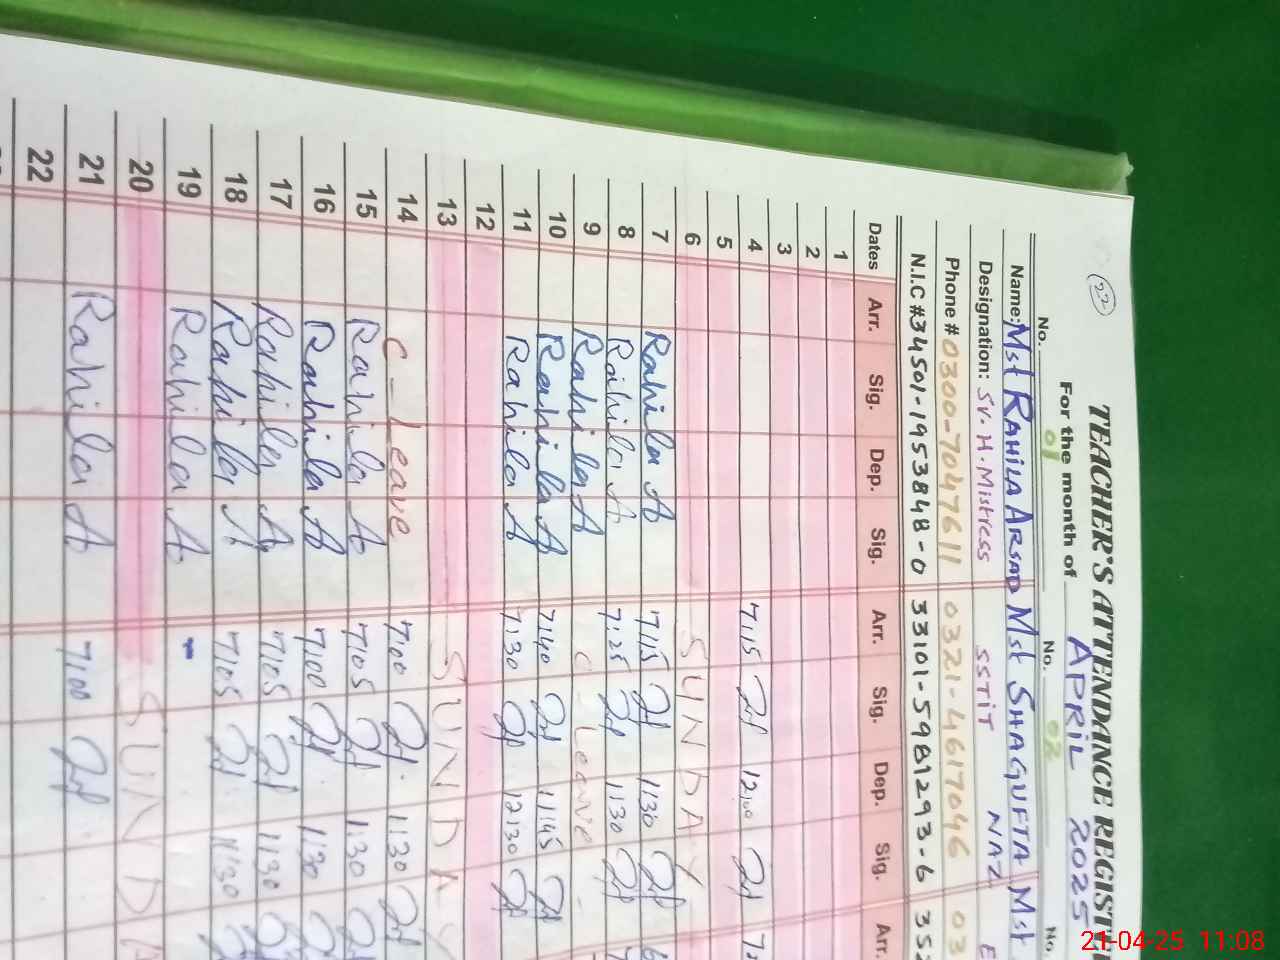 22
TEACHER'S ATTENDANCE REGISTE
For the month of APRIL 2025
No. 01 No. 02 No.
Name: Mst RAHILA ARSAD Mst SHAGUFTA Mst
NAZ
Designation: Sr. H. Mistress SSTiT E
Phone # 0300-7047611 0321-4617046 03
N.I.C # 34501-1953848-0 33101-5981293-6 352
Dates Arr. Sig. Dep. Sig. Arr. Sig. Dep. Sig. Arr.
1
2
3
4 7:15 12:00
5
6 SUNDAY
7 Rahila A 7:15 1:30
8 Rahila A 7:25 1:30
9 Rahila A C-Leave
10 Rahila A 7:40 11:45
11 Rahila A 7:30 12:30
12
13 SUNDAY
14 C-Leave 7:00 1:30
15 Rahila A 7:05 1:30
16 Rahila A 7:00 1:30
17 Rahila A 7:05 1:30
18 Rahila A 7:05 11:30
19 Rahila A
20 SUNDA
21 Rahila A 7:00
22
21-04-25 11:08